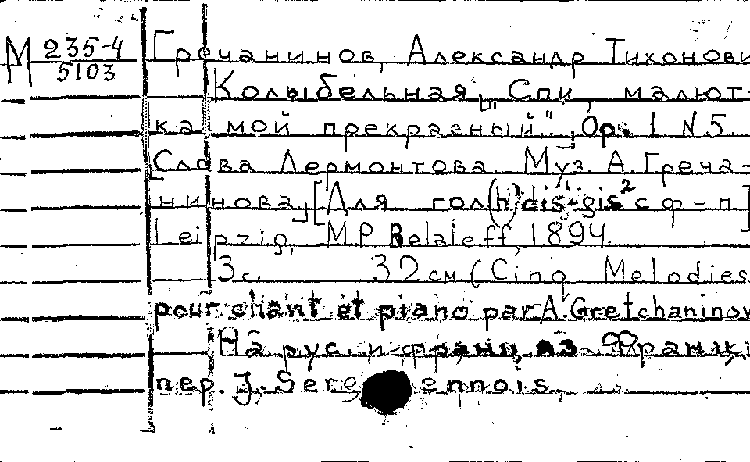 М 235-4
5103
Гречанинов, Александр Тихонови
Колыбельная „Спи, малют-
ка мой прекрасный", Ор. 1 N 5
Слова Лермонтова. Муз. А. Греча-
нинова, [Для гол (h) dis¹-gis² с ф-п]
Leipzig, M P Belaieff, 1894.
3 с. 32 см (Cinq Melodies
pour chant et piano par A. Gretchaninow
На рус. и франц. яз. Франц.
пер. J. Serg ennois.